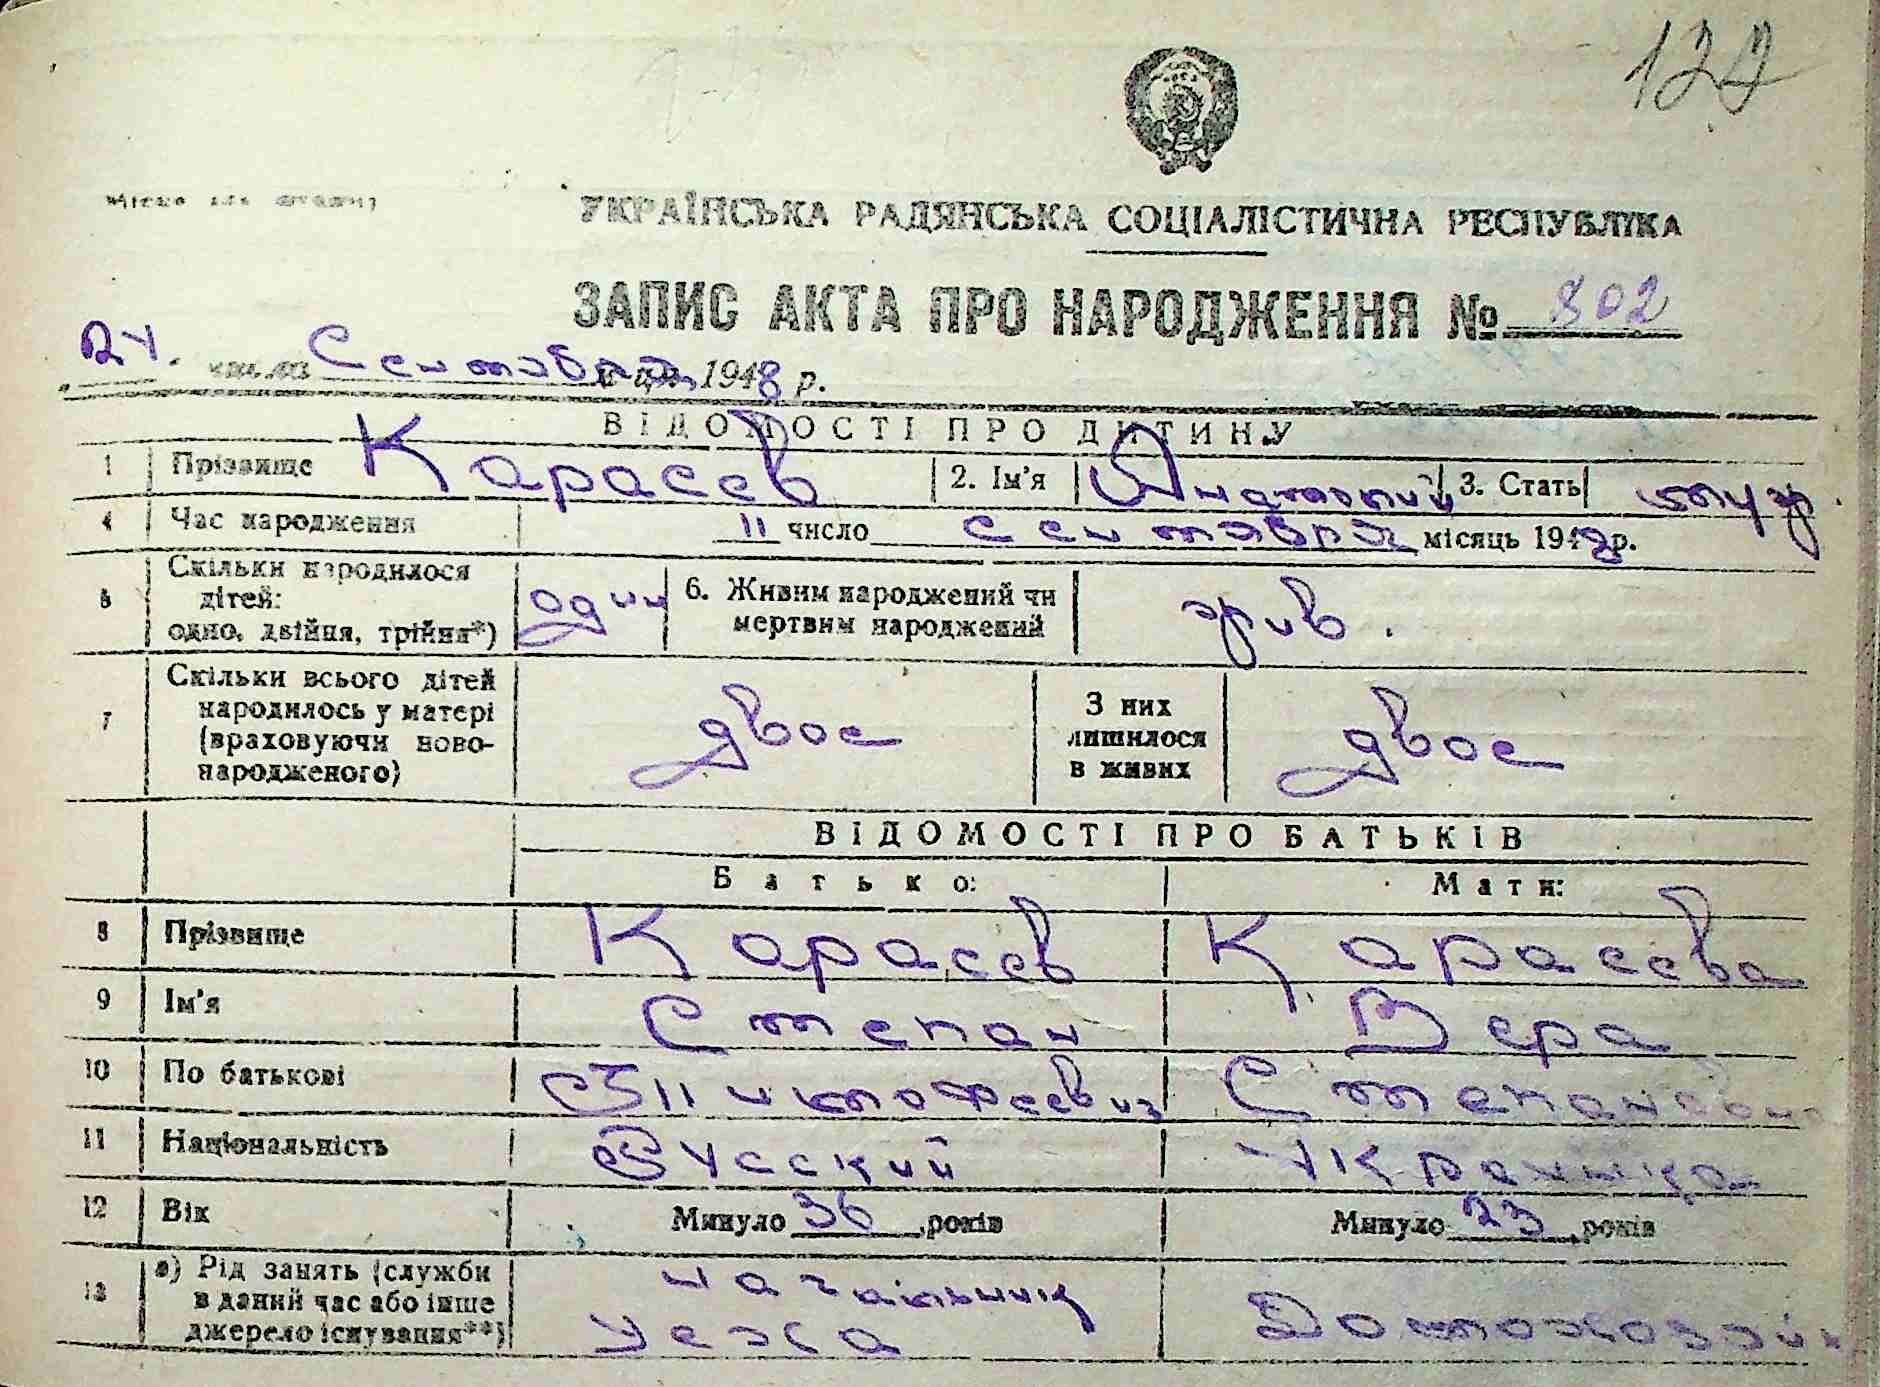 УКРАЇНСЬКА РАДЯНСЬКА СОЦІАЛІСТИЧНА РЕСПУБЛІКА
ЗАПИС АКТА ПРО НАРОДЖЕННЯ № 802
Сентября 1948 р.
ВІДОМОСТІ ПРО ДИТИНУ
1 Прізвище Карасев 2. Ім'я Анатолий 3. Стать муж.
4 Час народження 11 число сентября місяць 1948 р.
5 Скільки народилося дітей: одно, двійня, трійня*) один 6. Живим народжений чи мертвим народжений жив.
7 Скільки всього дітей народилось у матері (враховуючи новонародженого) двое З них лишилося в живих двое
ВІДОМОСТІ ПРО БАТЬКІВ
Батько: Мати:
8 Прізвище Карасев Карасева
9 Ім'я Степан Вера
10 По батькові Степановна
11 Національність Русский Украинка
12 Вік Минуло 36 років Минуло 23 років
13 а) Рід занять (служби в даний час або інше джерело існування**) начальник цеха